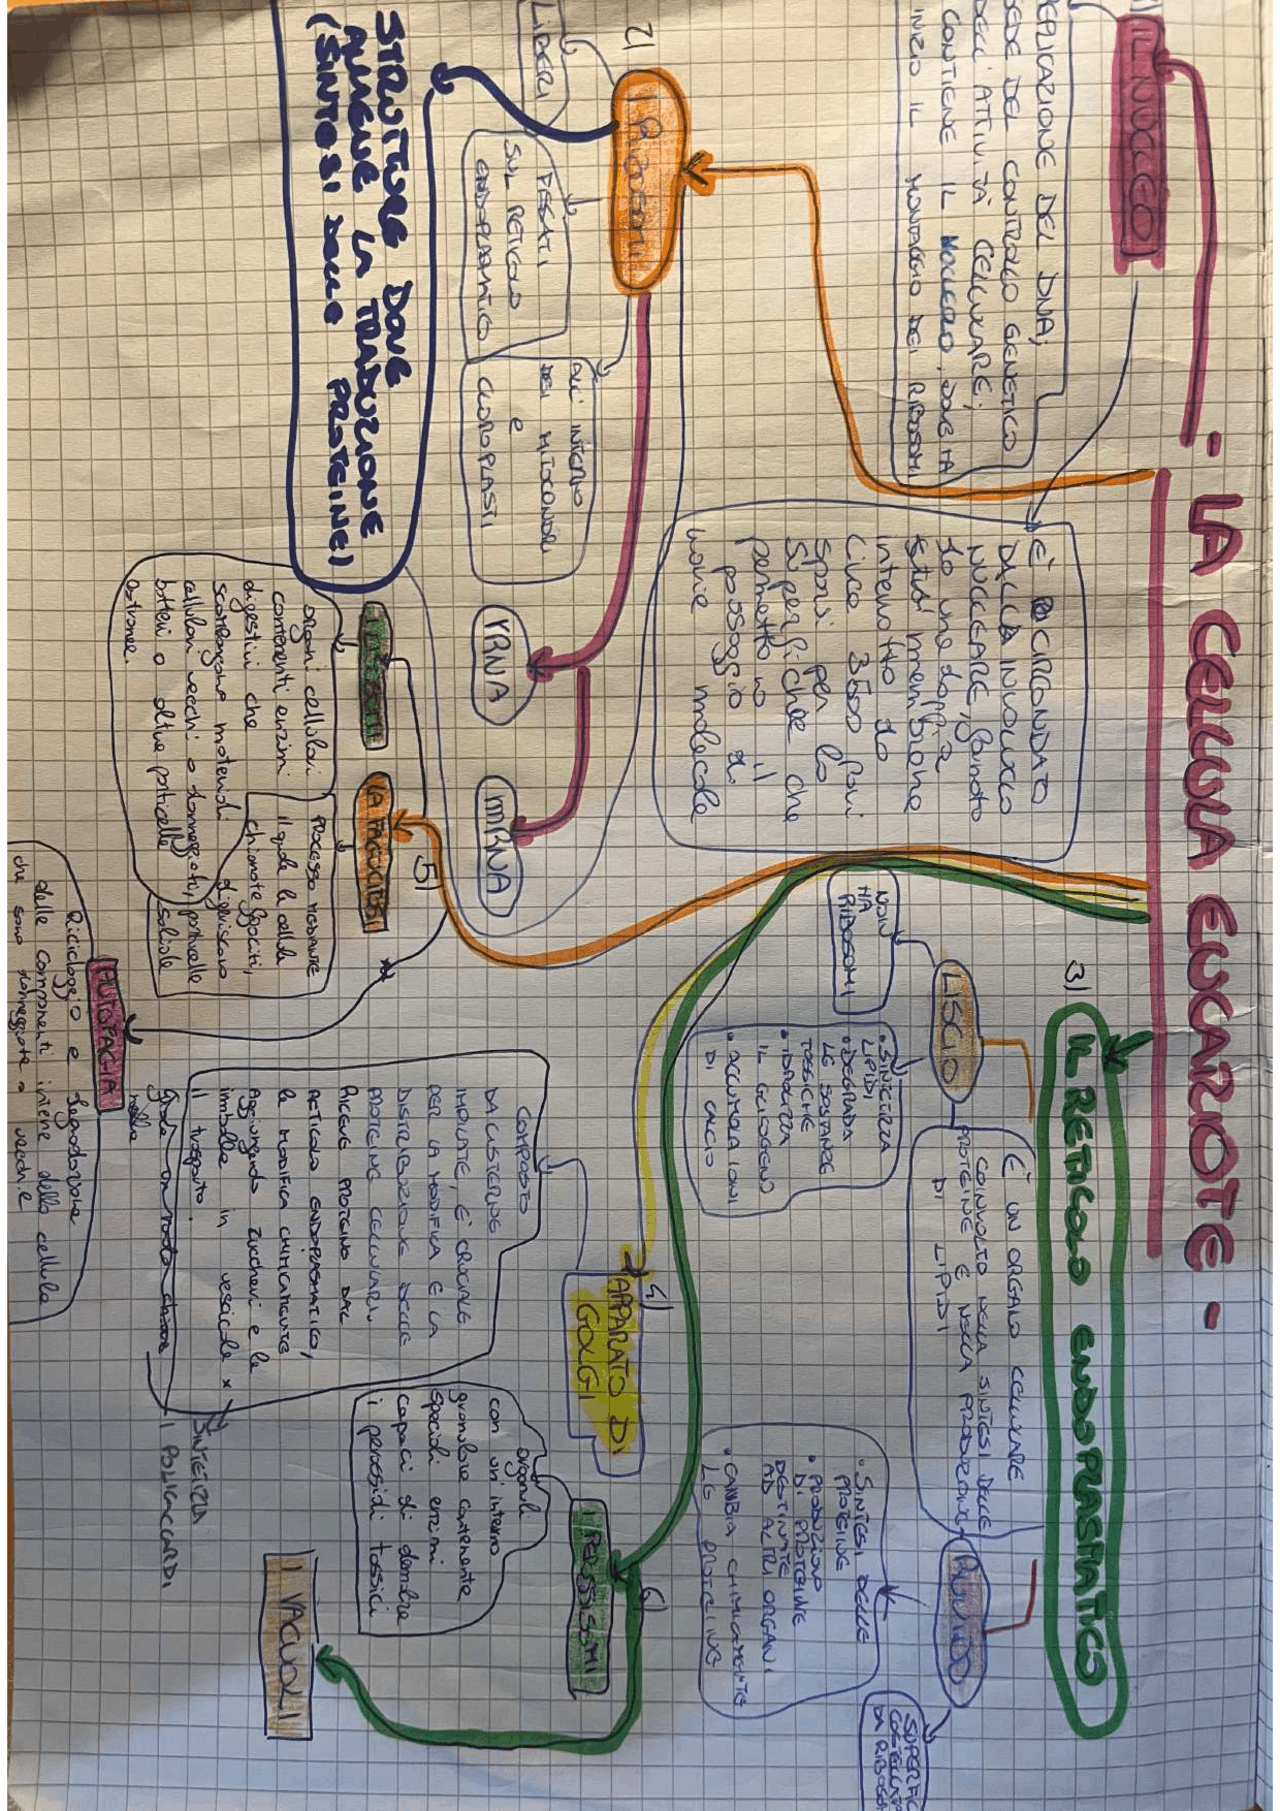 - LA CELLULA EUCARIOTE -
IL NUCLEO
REPLICAZIONE DEL DNA;
SEDE DEL CONTROLLO GENETICO
DELL'ATTIVITÀ CELLULARE;
CONTIENE IL NUCLEOLO, DOVE HA
INIZIO IL MONTAGGIO DEI RIBOSOMI
È CIRCONDATO
DALLA INVOLUCRO
NUCLEARE, formato
da una doppia
membrana
interrotto da
circa 3500 pori
sparsi per la
superficie che
permettono il
passaggio di
molecole
2)
I RIBOSOMI
LIBERI
FISSATI
SUL RETICOLO
ENDOPLASMATICO
ALL'INTERNO
DEI MITOCONDRI
E
CLOROPLASTI
STRUTTURE DOVE
AVVIENE LA TRADUZIONE
(SINTESI DELLE PROTEINE)
rRNA
mRNA
3)
IL RETICOLO ENDOPLASMATICO
È UN ORGANO CELLULARE
COINVOLTO NELLA SINTESI DELLE
PROTEINE E NELLA PRODUZIONE
DI LIPIDI
LISCIO
NON
HA
RIBOSOMI
• SINTETIZZA
LIPIDI
• DEGRADA
LE SOSTANZE
TOSSICHE
• IDROLIZZA
IL GLICOGENO
• ACCUMULA IONI
DI CALCIO
RUVIDO
• SINTESI DELLE
PROTEINE
• PRODUZIONE
DI PROTEINE
DESTINATE
AD ALTRI ORGANI
• CAMBIA CHIMICAMENTE
LE PROTEINE
SUPERFIC
COSTELLATA
DA RIBOSO
4)
APPARATO DI
GOLGI
COMPOSTO
DA CISTERNE
IMPILATE, È CRUCIALE
PER LA MODIFICA E LA
DISTRIBUZIONE DELLE
PROTEINE CELLULARI
RICEVE PROTEINE DAL
RETICOLO ENDOPLASMATICO,
le MODIFICA CHIMICAMENTE
Aggiungendo zuccheri e le
imballa in vescicole x
il trasporto.
SINTETIZZA
I POLISACCARIDI
5)
I LISOSOMI
organi cellulari
contenenti enzimi
digestivi che
scompongono materiali
cellulari vecchi o danneggiati, particelle
batteri o altre particelle
estranee.
LA FAGOCITOSI
PROCESSO MEDIANTE
il quale le cellule
chiamate fagociti,
digeriscono
solide
AUTOFAGIA
Riciclaggio e degradazione
delle componenti interne della cellula
che sono danneggiate o vecchie
6)
I PEROSSISOMI
organuli
con un'interno
granulare contenente
speciali enzimi
capaci di demolire
i perossidi tossici
I VACUOLI